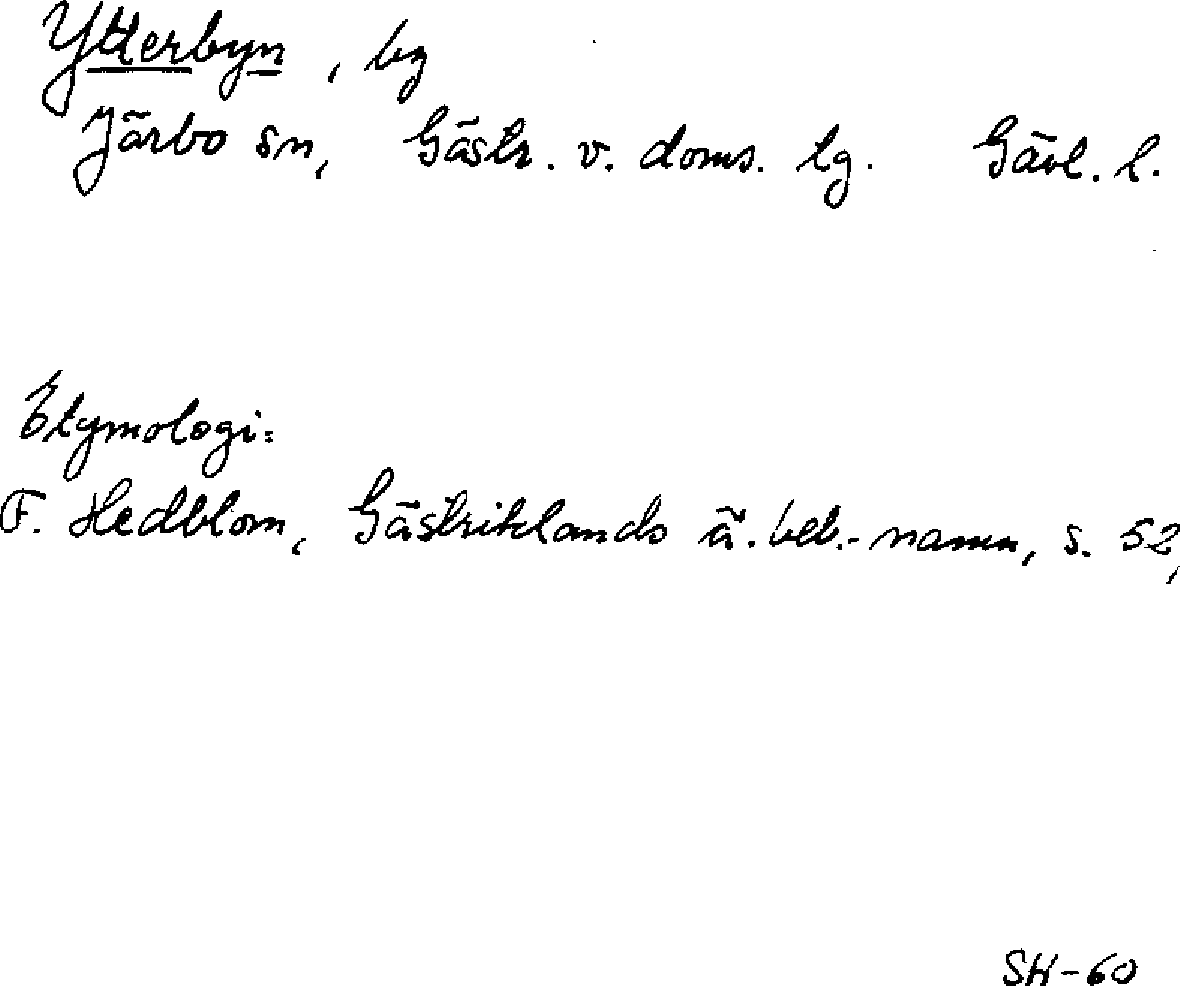 Ytterbyn, by
Järbo sn, Gästr. v. doms. tg. Gävl. l.
Etymologi:
F. Hedblom, Gästriklands ä. beb.-namn, s. 52,
SH-60